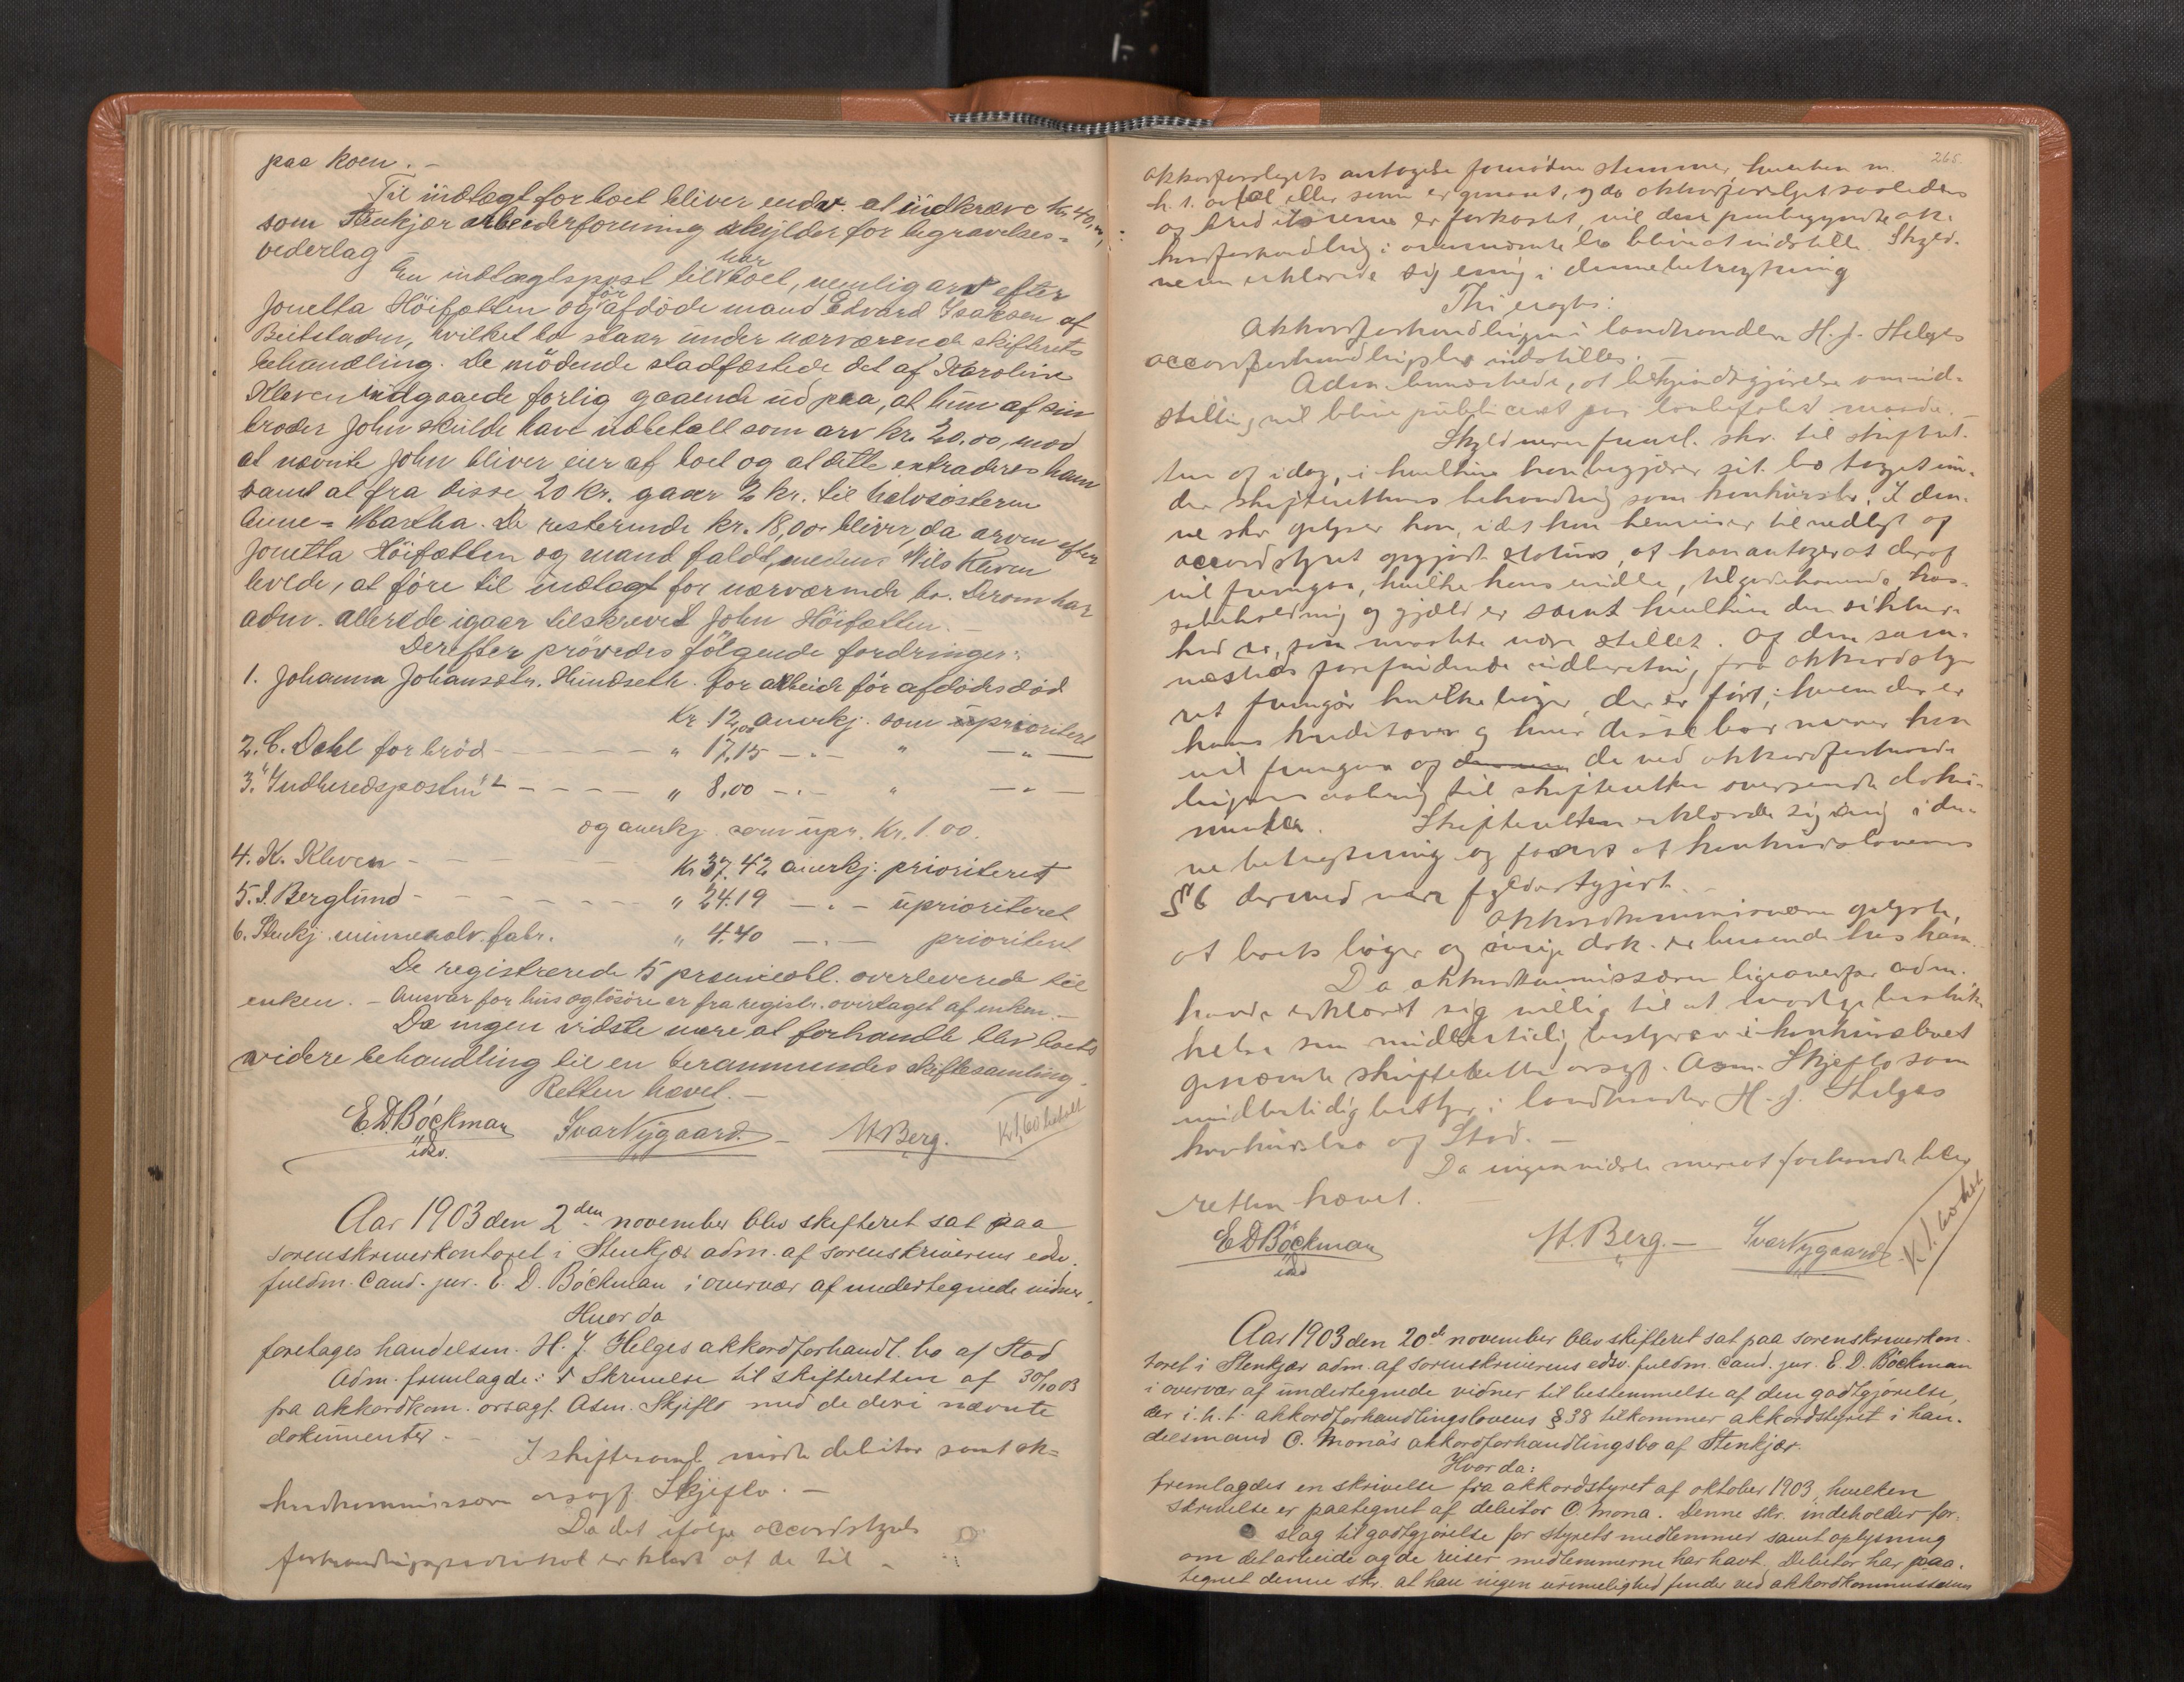 paa koen. –
Til indtægt for boet bliver endv. at indkræve kr. 40,00,
som Stenkjær arbeiderforening skylder for begravelses=
vederlag –
En indtægtspost til har boet, nemlig arv efter
Jonetta Höifætten og før afdöde mand Edvard Isaksen af
Beitstaden, hvilket bo staar under nærværende skifterets
behandling. De mödende stadfæstede det af Karoline
Kleven indgaaede forlig gaaende ud paa, at hun af sin
broder John skulde have udbetalt som arv kr. 20.00, mod
at nævnte John bliver eier af boet og at dette extraderes ham
samt at fra disse 20 kr. gaar 2 kr. til halvsösteren
Anne=Martha. De resterende kr. 18,00 bliver, da arven efter
Jonetta Höifætten og mand faldt, medens Nils Kleven
levede, at före til indtægt for nærværende bo. Derom har
adm. allerede igaar tilskrevet John Höifætten. –
Derefter prövedes fölgende fordringer:
1. Johanna Johansdtr. Hundseth. for arbeide för afdödes död
Kr. 12,00 anerkj. som uprioritert
2. C. Dahl for bröd – – – – – " 17,15 – " – " – " –
3. "Indherredsposten" – – – – " 8,00 – " – " – " –
og anerkj. som upr. Kr. 1.00.
4. K. Kleven – – – – – Kr 37.42 anerkj. prioriteret
5. J. Berglund – – – – – " 24.19 – " – uprioriteret
6. Stenkj. mineralv. fabr. " 4.40 – " – prioriteret
De registrerede 15 præmieobl. overleverede til
enken. – Ansvar for hus og lösöre er fra registr. overtaget af enken. –
Da ingen vidste mere at forhandle blev boets
videre behandling til en berammendes skiftesamling.
Retten hævet. –
E. D. Böckman Ivar Nygaard. – M. Berg. Kr 1,60 betalt
edsv.
Aar 1903 den 2den november blev skifteret sat paa
sorenskriverkontoret i Stenkjær adm. af sorenskriverens edsv.
fuldm. Cand. jur. E. D. Böckman i overvær af undertegnede vidner.
Hvor da
foretages handelsm. H. J. Helges akkordforhandl. bo af Stod
Adm. fremlagde: 1 Skrivelse til skifteretten af 30/10 03
fra akkordkom. orsagf. Asm. Skjeflo med de deri nævnte
dokumenter. –
I skiftesaml. mödte debitor samt ak=
kordkommissær orsagf. Skjeflo. –
Da det ifølge accordstyrets
forhandlingsprotokol er klart at de til –
265.
akkordforslagets antagelse fornødne stemmer, hverken m.
h. t. antal eller sum er opnaaet, og da akkordforslaget saaledes
af kreditorerne er forkastet, vil den paabegyndte ak-
kordforhandling i ovennævnte bo blive at indstille. Skyld-
neren erklærede sig enig i denne betragtning
Thi eragtes:
Akkordforhandlingen i landhandler H. J. Helges
accordforhandlingsbo indstilles. –
Adm. bemærkede, at bekjendtgjørelse om ind-
stilling vil blive publiceret paa lovbefalet maade. –
Skyldneren fremL. skr. til skifteret-
ten af idag, i hvilken han begjærer sit bo taget un-
der skifterettens behandling som konkursbo. I den-
ne skr. oplyser han, idet han henviser til vedlagt af
accordstyret opgjort status, at han antager at deraf
vil fremgaa, hvilke hans midler, tilgodehavende, kas-
sebeholdning og gjæld er samt hvilken den sikker-
hed er, som maatte være stillet. Af den sam-
mesteds forefindende indberetning fra akkordsty-
ret fremgår hvilke bøger, der er ført; hvem der er
hans kreditorer og hvor disse bor mener han
vil fremgaa af de ved akkordforhand-
lingens aabning til skifteretten oversendte doku-
menter. Skifteretten erklærede sig enig i den-
ne betragtning og fandt at konkurslovens
§ 6 dermed være fyldestgjort. –
Akkordkommissæren oplyste,
at boets bøger og øvrige dok. er beroende hos ham.
Da akkordkommissæren ligeoverfor adm.
havde erklæret sig villig til at modtage beskik-
kelse som midlertidig bestyrer i konkursboet
opnævnte skifteretten orsagf. Asm. Skjeflo som
midlertidig bestyrer i landhandler H. J. Helges
konkursbo af Stod. –
Da ingen vidste mere at forhandle blev
retten hævet. –
E D Böckman M. Berg. – Ivar Nygaard K. 1.60 bet
edsv
Aar 1903 den 20de november blev skifteret sat paa sorenskriverkon-
toret i Stenkjær adm. af sorenskriverens edsv. fuldm. Cand. jur. E. D. Böckman
i overvær af undertegnede vidner til bestemmelse af den godtgjørelse,
der i. h. t. akkordforhandlingslovens § 38 tilkommer akkordstyret i han-
delsmand O. Mona's akkordforhandlingsbo af Stenkjær.
Hvor da:
fremlagdes en skrivelse fra akkordstyret af oktober 1903, hvilken
skrivelse er paategnet af debitor O. Mona. Denne skr. indeholder for-
slag til godtgjørelse for styrets medlemmer samt oplysning
om det arbeide og de reiser medlemmerne har havt. Debitor har paa-
tegnet denne skr. at han ingen urimelighed finder ved akkordkommissæren